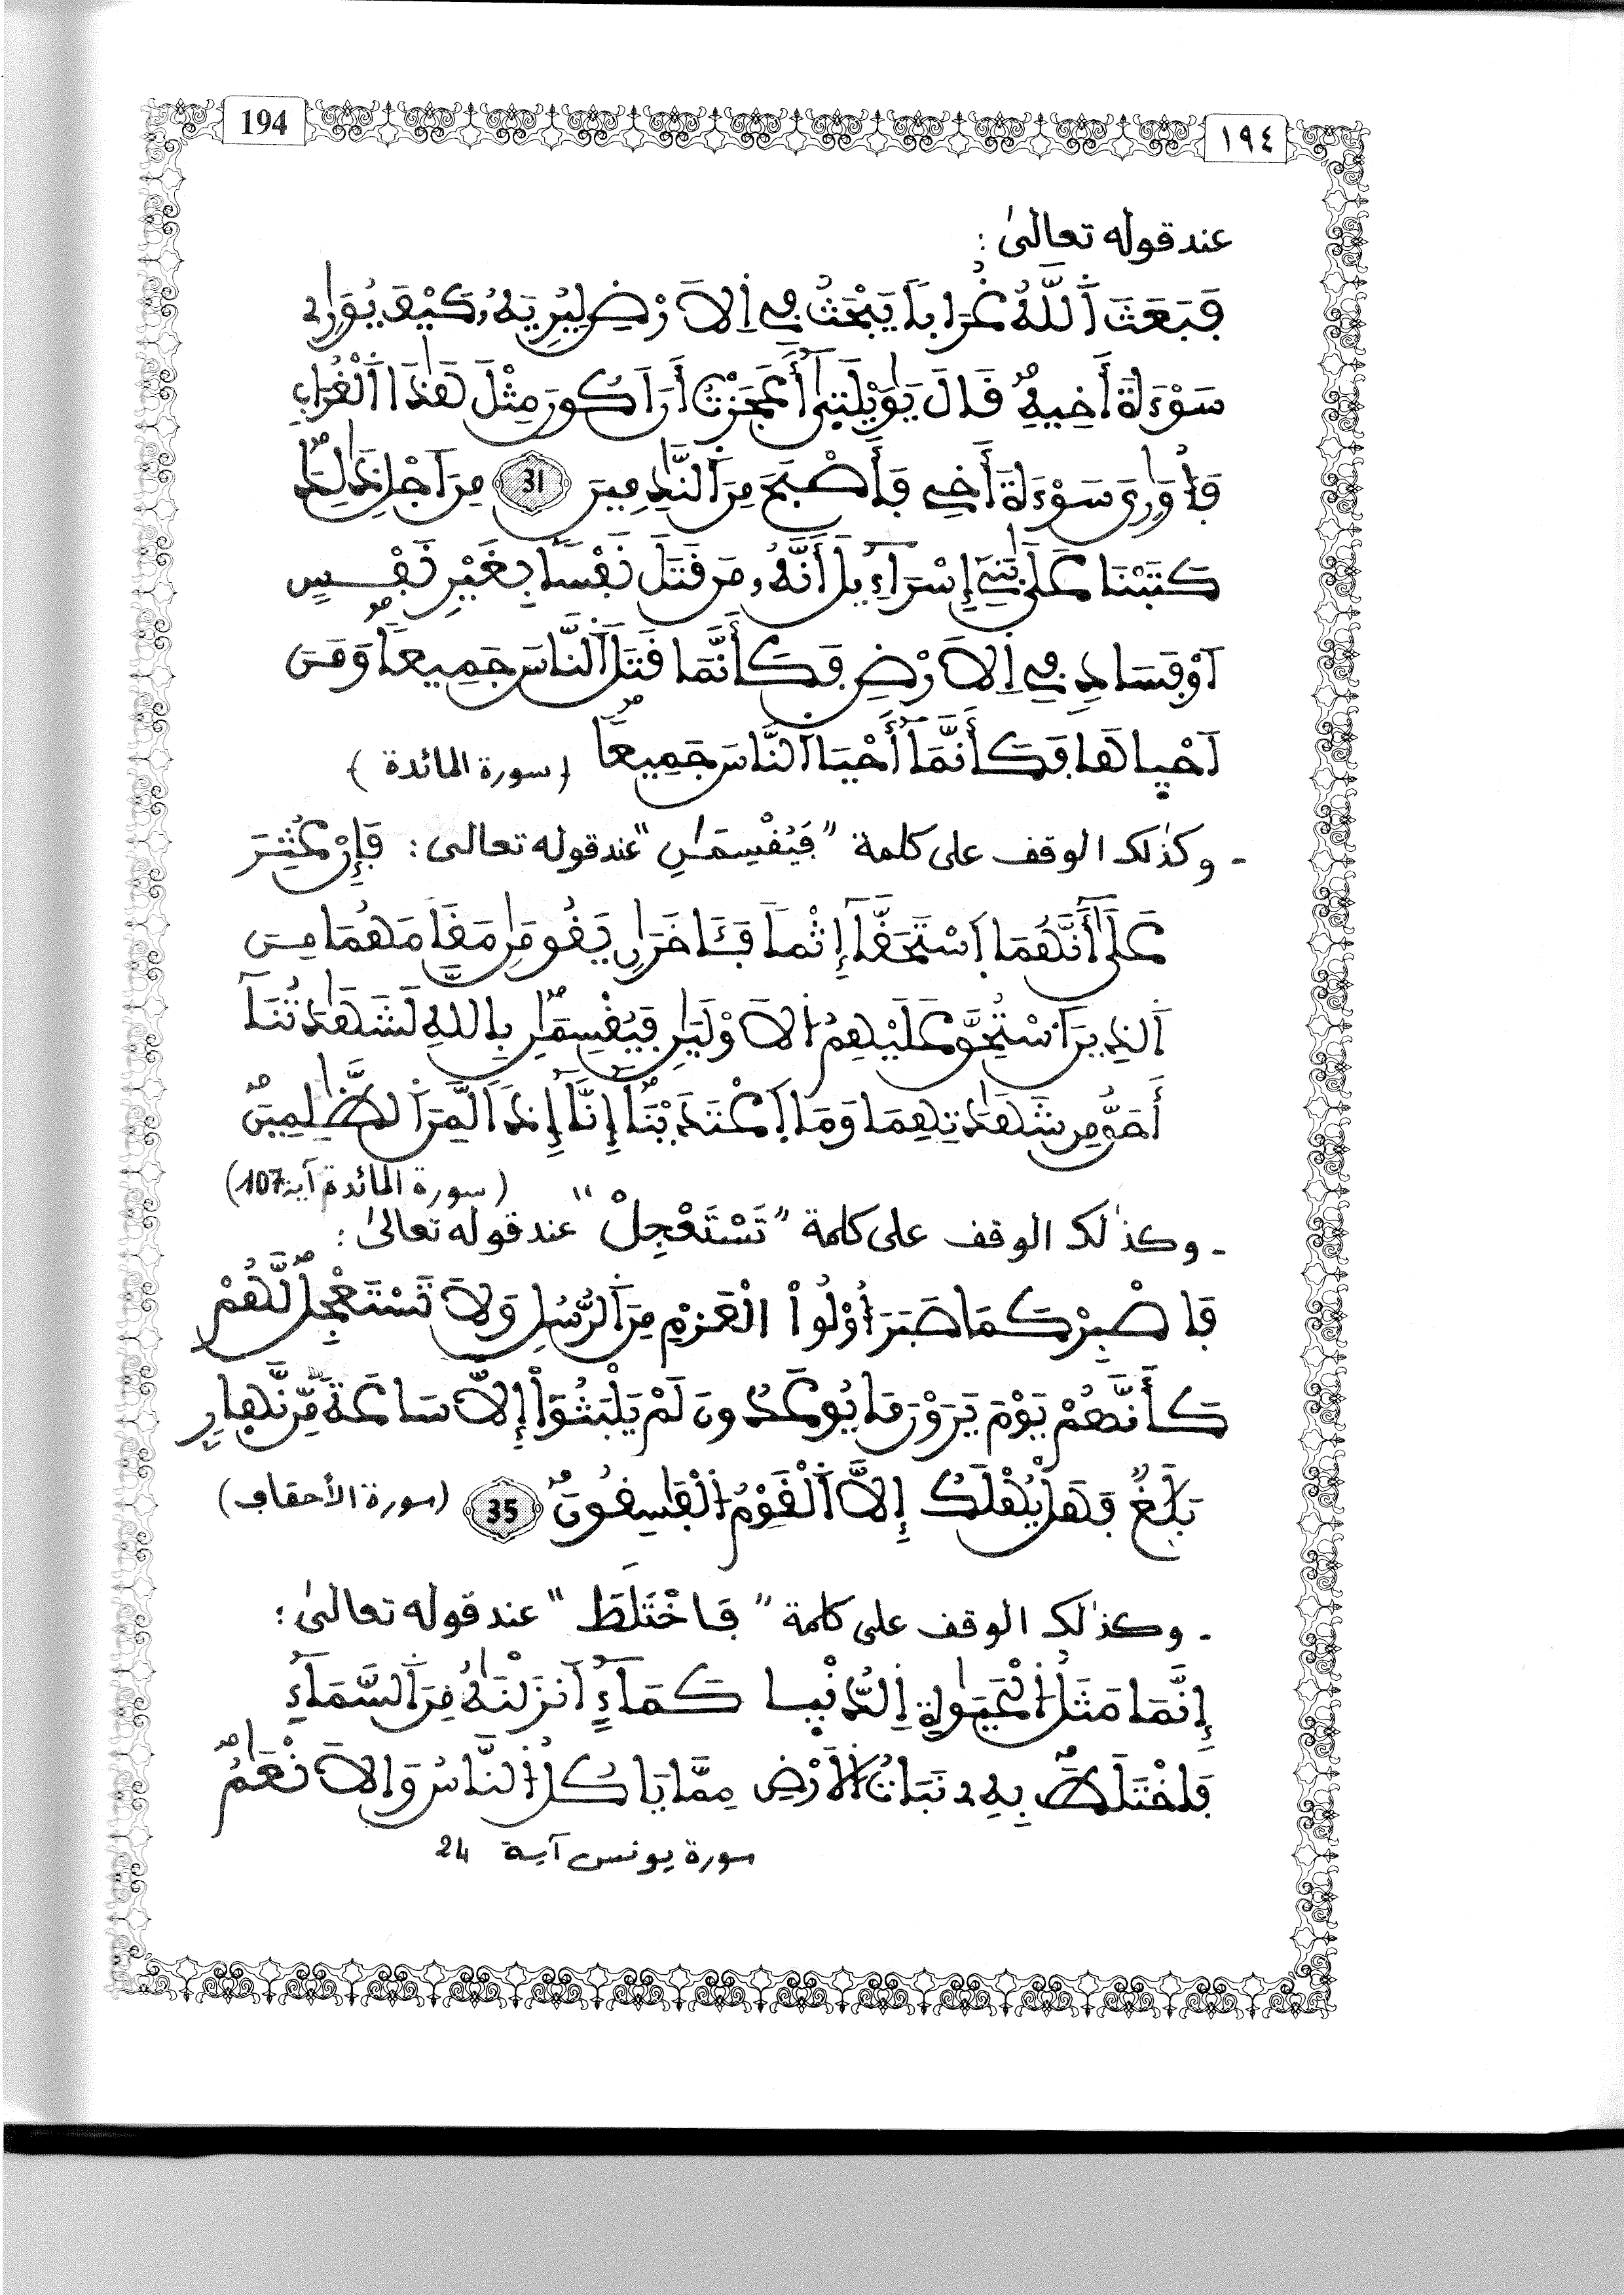 194
١٩٤
عند قوله تعالىٰ :
فَبَعَثَ اَللَّهُ غُرَاباً يَبْحَثُ فِي اِلَارْضِ لِيُرِيَهُۥ كَيْفَ يُوَٰرِے
سَوْءَةَ أَخِيهِۖ قَالَ يَٰوَيْلَتِىٰٓ أَعَجَزْتُ أَنَ اَكُونَ مِثْلَ هَٰذَا اَلْغُرَابِ
فَأُوَٰرِيَ سَوْءَةَ أَخِے فَأَصْبَحَ مِنَ اَلنَّٰدِمِينَ 31 مِنَ اَجْلِ ذَٰلِكَۖ
كَتَبْنَا عَلَىٰ بَنِےٓ إِسْرَآءِيلَ أَنَّهُۥ مَن قَتَلَ نَفْسَاۢ بِغَيْرِ نَفْسٍ
اَوْ فَسَادٖ فِي اِلَارْضِ فَكَأَنَّمَا قَتَلَ اَلنَّاسَ جَمِيعاًۖ وَمَنَ
اَحْيِاهَا فَكَأَنَّمَآ أَحْيَا اَلنَّاسَ جَمِيعاًۖ (سورة المائدة)
- وكذٰلك الوقف على كلمة "فَيُقْسِمَٰنِ" عند قوله تعالى : فَإِنْ عُثِرَ
عَلَىٰٓ أَنَّهُمَا اَسْتَحَقَّآ إِثْماً فَـَٔاخَرَٰنِ يَقُومَٰنِ مَقَامَهُمَا مِنَ
اَلذِينَ اَسْتُحِقَّ عَلَيْهِمُ اُلَاوْلَيَٰنِ فَيُقْسِمَٰنِۖ بِاللهِ لَشَهَٰدَتُنَآ
أَحَقُّ مِن شَهَٰدَتِهِمَا وَمَا اَعْتَدَيْنَآۖ إِنَّآ إِذاً لَّمِنَ اَلظَّٰلِمِينَۖ
(سورة المائدة آية 107)
- وكذٰلك الوقف على كلمة "تَسْتَعْجِلْ" عند قوله تعالىٰ :
فَاصْبِرْ كَمَا صَبَرَ أُوْلُواْ اْلْعَزْمِ مِنَ اَلرُّسُلِ وَلَا تَسْتَعْجِلۖ لَّهُمْ
كَأَنَّهُمْ يَوْمَ يَرَوْنَ مَا يُوعَدُونَ لَمْ يَلْبَثُوٓاْ إِلَّا سَاعَةٗ مِّن نَّهٖارِۢ
بَلَٰغٞ فَهَلْ يُهْلَكُ إِلَّا اَلْقَوْمُ اُلْفَٰسِقُونَۖ 35 (سورة الأحقاف)
- وكذٰلك الوقف على كلمة "فَاخْتَلَطَ" عند قوله تعالىٰ :
إِنَّمَا مَثَلُ اُلْحَيَوٰةِ اِلدُّنْيِا كَمَآءٍ اَنزَلْنَٰهُ مِنَ اَلسَّمَآءِ
فَاخْتَلَطَۖ بِهِۦ نَبَاتُ اُلَارْضِ مِمَّا يَاكُلُ اُلنَّاسُ وَالَانْعَٰمُۖ
سورة يونس آية 24